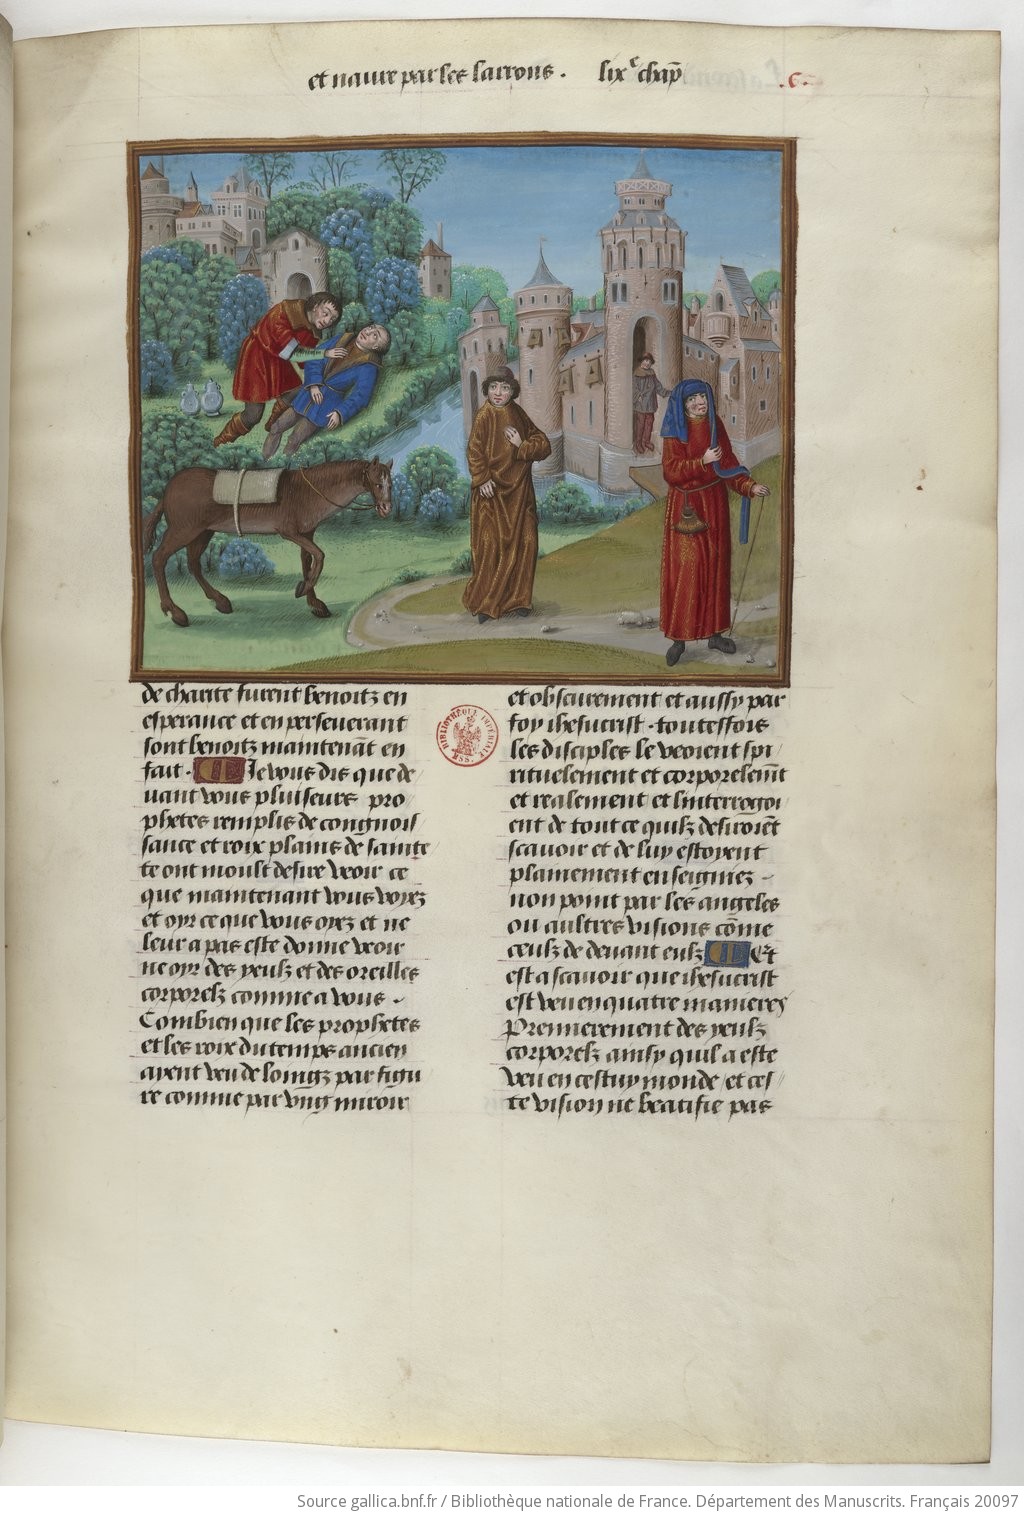 et naure par les larrons . lixe chap̃ .c.
de charite furent benoitz en
esperance et en perseuerant
sont benoitz maintenãt en
fait . Je vous dis que de
uant vous pluiseurs pro
phetes remplis de congnois
sance et roix plains de sainte
te ont moult desire veoir ce
que maintenant vous voyez
et oyr ce que vous oyez et ne
leur a pas este donne veoir
ne oyr des yeulz et des oreilles
corporelz comme a vous .
Combien que les prophetes
et les roix du temps ancien
ayent veu de loingz par figu
re comme par vng miroir
et obscurement et aussy par
foy ihesucrist . toutesfois
les disciples le veoient spi
rituelement et corporelem̃t
et realement et linterrogoi
ent de tout ce quilz desiroiẽt
scauoir et de luy estoyent
plainement enseigniez
non point par les angeles
ou aultres visions cõme
ceulz de deuant eulz Et
est a scauoir que ihesucrist
est veu en quatre manieres
Premierement des yeulz
corporelz ainsy quil a este
veu en cestuy monde et ces
te vision ne beatifie pas
BIBLIOTHÈQUE IMPÉRIALE
MSS.
Source gallica.bnf.fr / Bibliothèque nationale de France. Département des Manuscrits. Français 20097